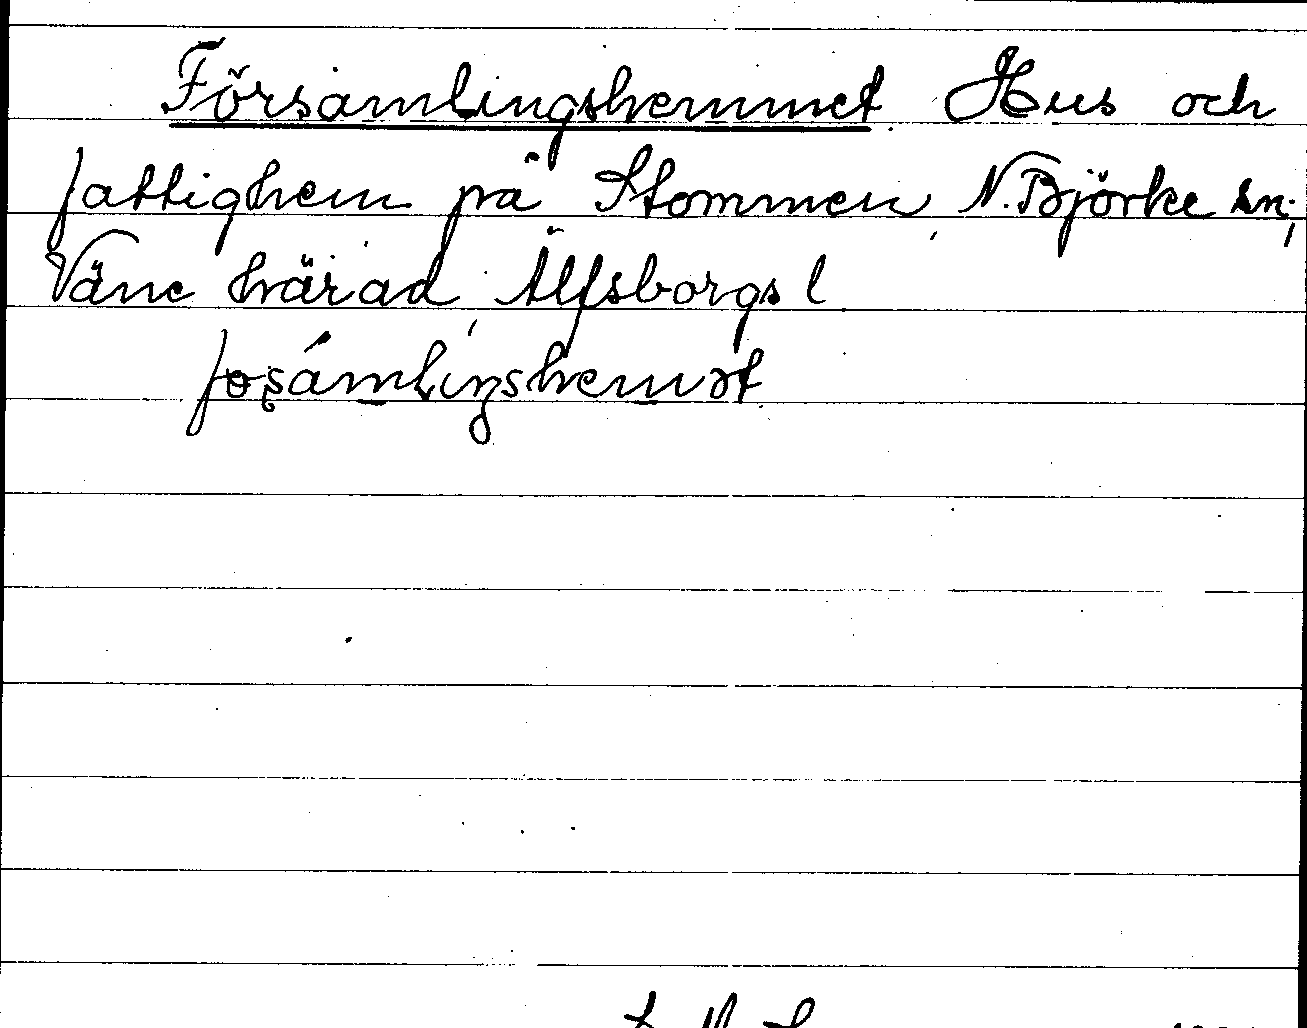 Församlingshemmet. Hus och
fattighem på Stommen, N. Björke sn;
Väne härad, Älfsborgs l